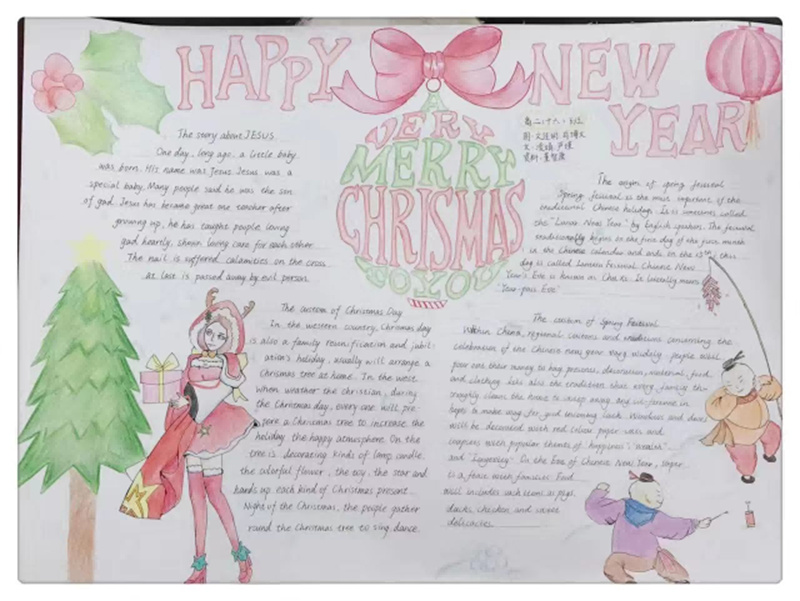 HAPPY NEW YEAR
A
VERY
MERRY
CHRISMAS
TO YOU
The story about JESUS
One day, long ago, a little baby
was born. His name was Jesus Jesus was a
special baby. Many people said he was the son
of god. Jesus has became great one teacher after
growing up, he has taught people loving
god heartly, shown loving care for each other
The nail is suffered calamities on the cross
at last is passed away by evil person.
The origin of spring festival
Spring festival is the most important of the
traditional Chinese holidays. It is sometimes called
the "Lunar New Year" by English speakers. The festival
traditionally begins on the first day of the first month
in the Chinese calendar and ends on the 15th, this
day is called Lantern Festival. Chinese New
Year's Eve is known as Chu Xi. It literally means
"Year-pass Eve"
The custom of Christmas Day
In the western country, Chrismas day
is also a family reunification and jubil-
arian's holiday, usually will arrange a
Chrismas tree at home. In the west
when weather the christian, during
the Christmas day, every one will pre-
pare a Christmas tree to increase the
holiday the happy atmosphere. On the
tree is decorating kinds of lamp candle.
the colorful flower, the toy, the star and
hands up each kind of Christmas present.
Night of the Christmas, the people gather
round the Christmas tree to sing, dance.
The custom of Spring Festival
Within China, regional customs and traditions concerning the
celebration of the Chinese new year vary widely. people will
pour out their money to buy presents, decoration, material, food
and clothing. It is also the tradition that every family tho-
roughly cleans the house to sweep away any ill-fortune in
hopes to make way for good incoming luck. Windows and doors
will be decorated with red colour paper-cuts and
couplets with popular themes of "happiness", "wealth"
and "longevity". On the Eve of Chinese New Year, supper
is a feast with families. Food
will include such items as pigs,
ducks, chicken and sweet
delicacies.